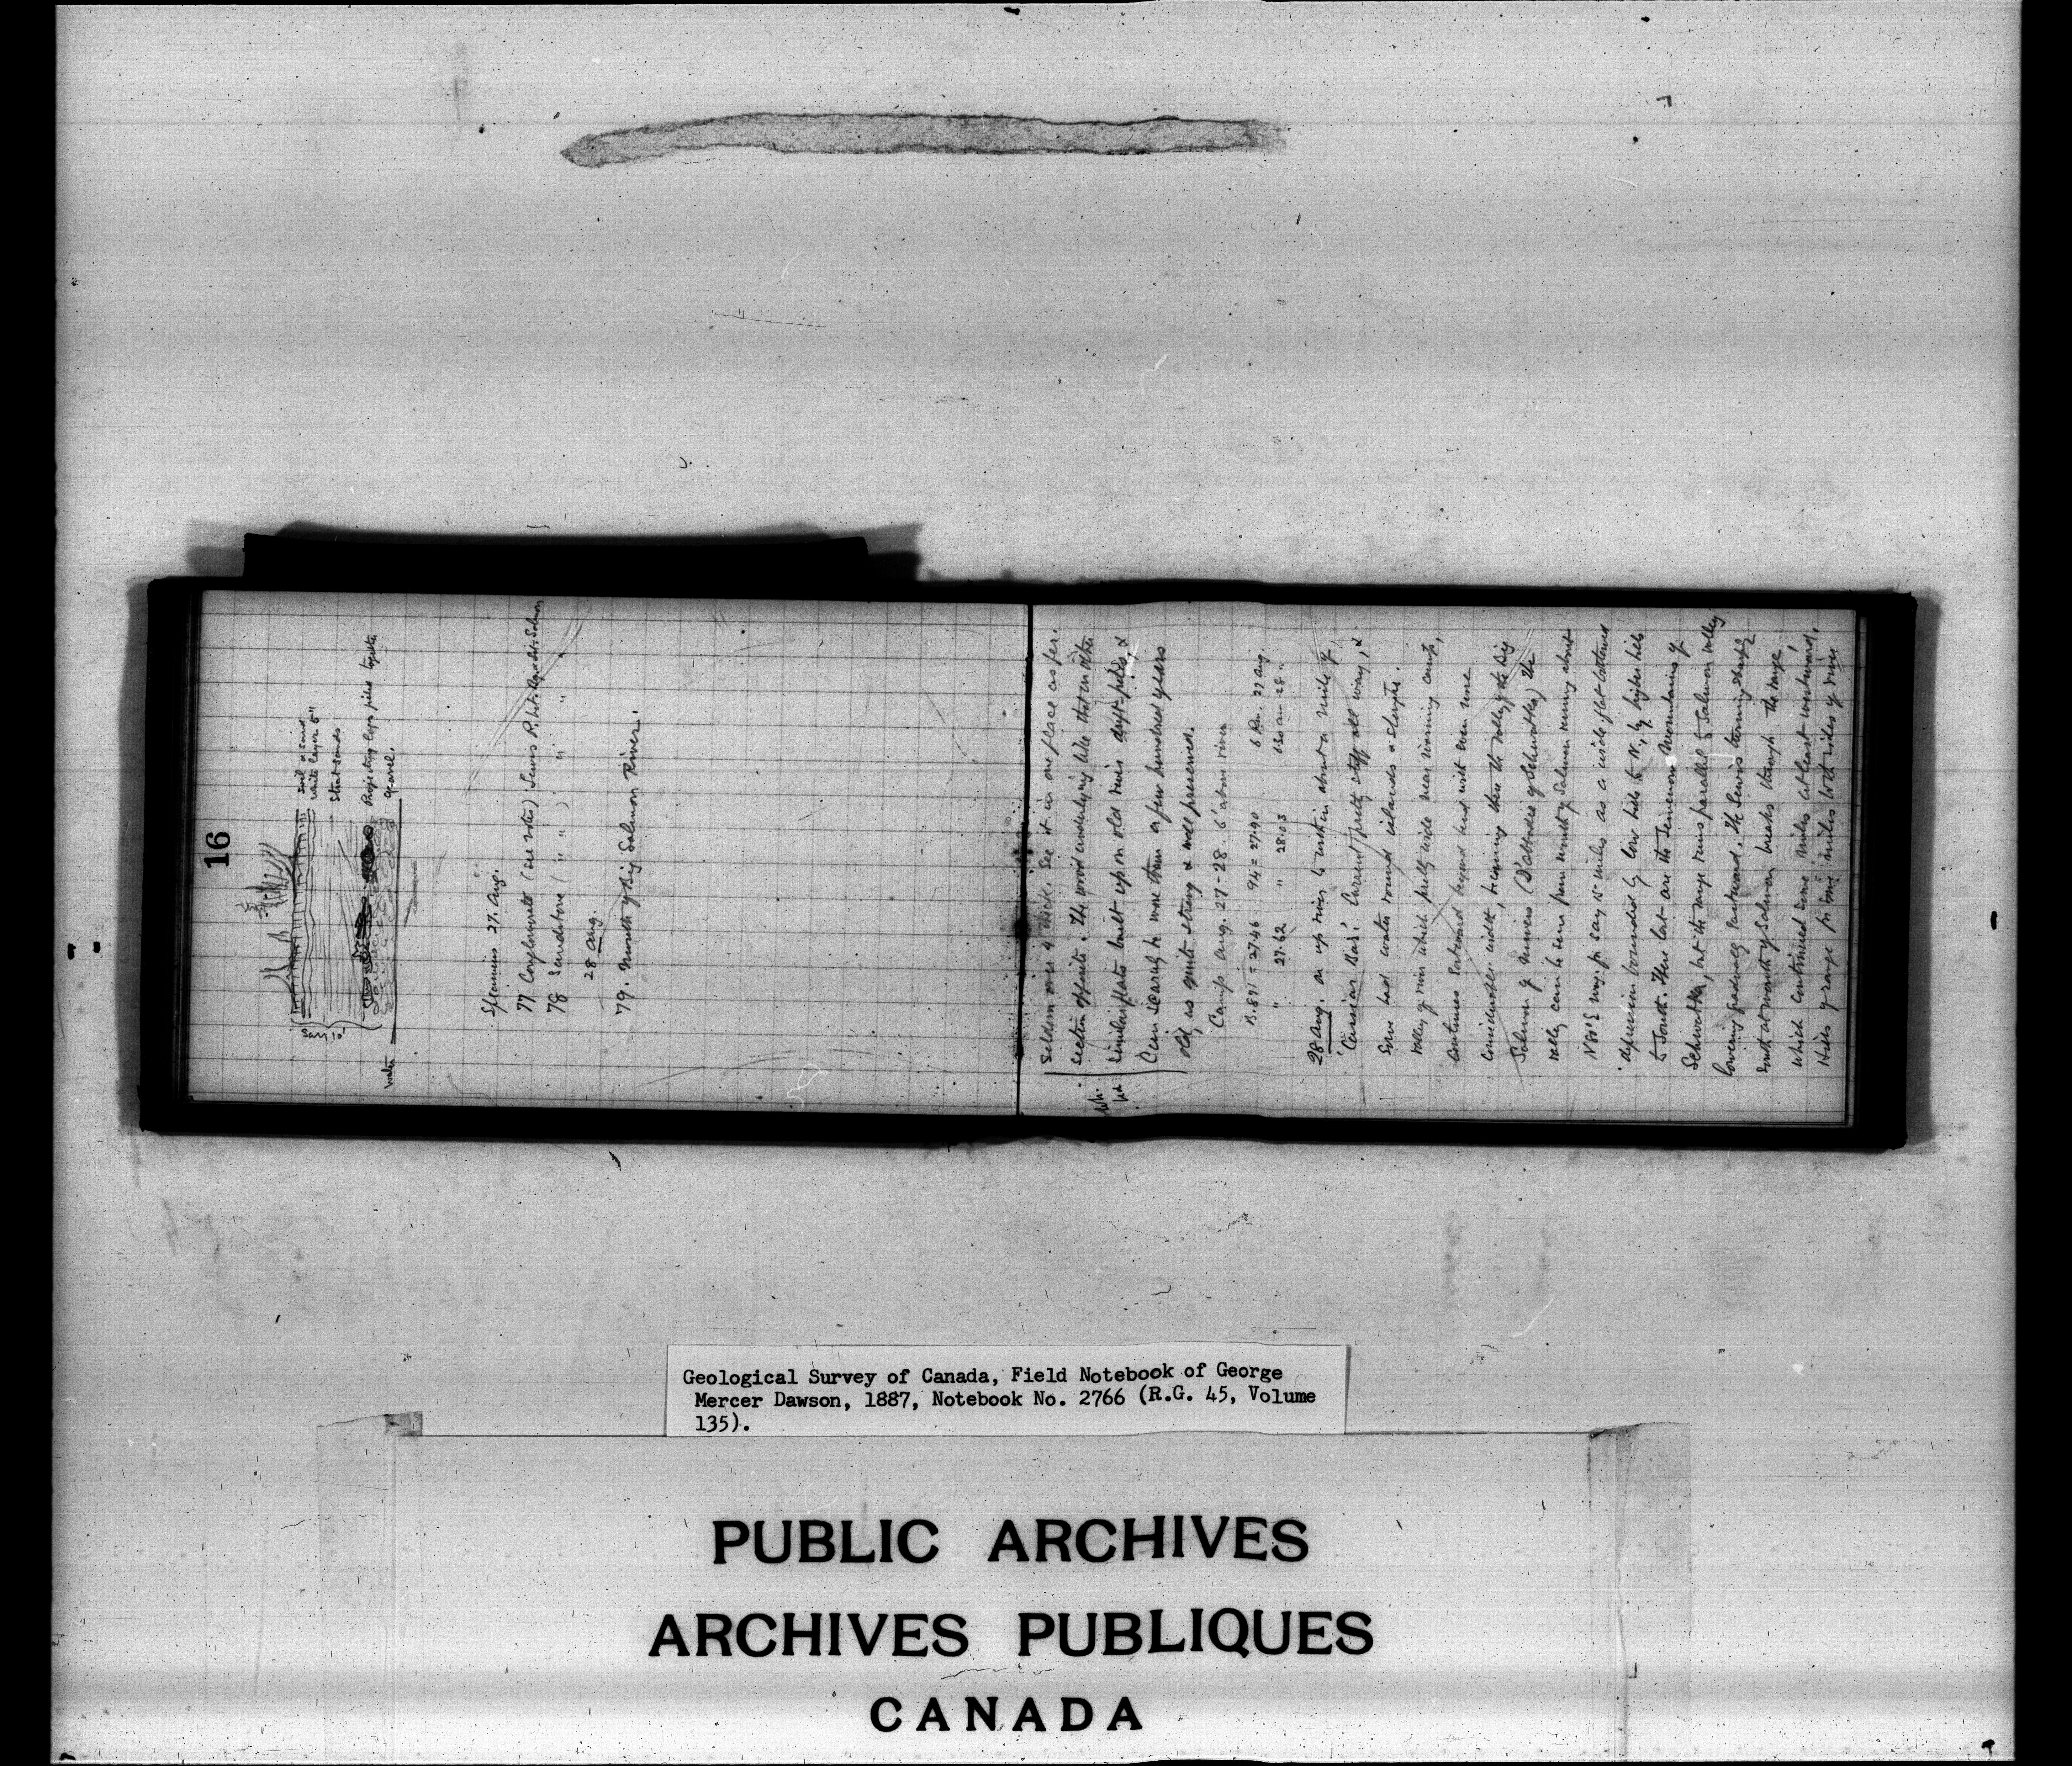 16
Soil & sand
White layer 5"
Strat sands
Projecting logs piled together
Gravel.
Say 10'
Water
Specimens 27. Aug.
77 Conglomerate (see notes) Lewis R. bet. & Salmon
78 Sandstone ( " " ) " " "
28 Aug.
79. Mouth of Big Salmon River.
Seldom over 4" thick. See it in one place as per.
section opposite. The wood underlying like that on other
similar flats built up on old river drift-piles, &
Can scarcely be more than a few hundred years
old, as quite strong & well preserved.
Camp Aug. 27-28. 6' above river
B. 891 = 27.46 94 = 27.90 6 P.m. 27 Aug.
" 27.62 " 28.03 6.30 am 28 "
28 Aug. on up river to within about a mile of
'Cassiar Bar.' Current pretty stiff all way, &
Some bad water round islands & sloughs.
Valley of river which pretty wide near morning camp,
continues Eastward beyond bend with even more
considerable width, becoming then the valley of the Big
Salmon of Miners (D'Abbadie of Schwatka) The
valley can be seen from mouth of Salmon running about
for say 15 miles as a wide flat bottomed
depression bounded by low hills to N, by higher hills
to South. These last are the Semenow Mountains of
Schwatka, but the range runs parallel to Salmon valley
lowering gradually Eastward. The Lewis turning sharply
South at mouth of Salmon breaks through the range,
which continued some miles at least westward.
Hills of range for some miles both sides of river
Geological Survey of Canada, Field Notebook of George
Mercer Dawson, 1887, Notebook No. 2766 (R.G. 45, Volume
135).
PUBLIC ARCHIVES
ARCHIVES PUBLIQUES
CANADA